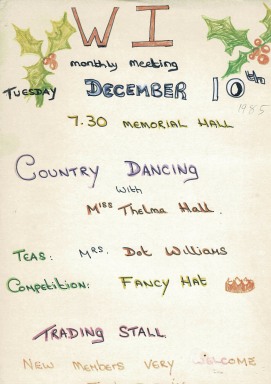 WI
monthly meeting
TUESDAY DECEMBER 10th
1985
7.30 MEMORIAL HALL
COUNTRY DANCING
with
Miss Thelma Hall.
TEAS: Mrs. Dot Williams
Competition: FANCY HAT
TRADING STALL
NEW MEMBERS VERY WELCOME